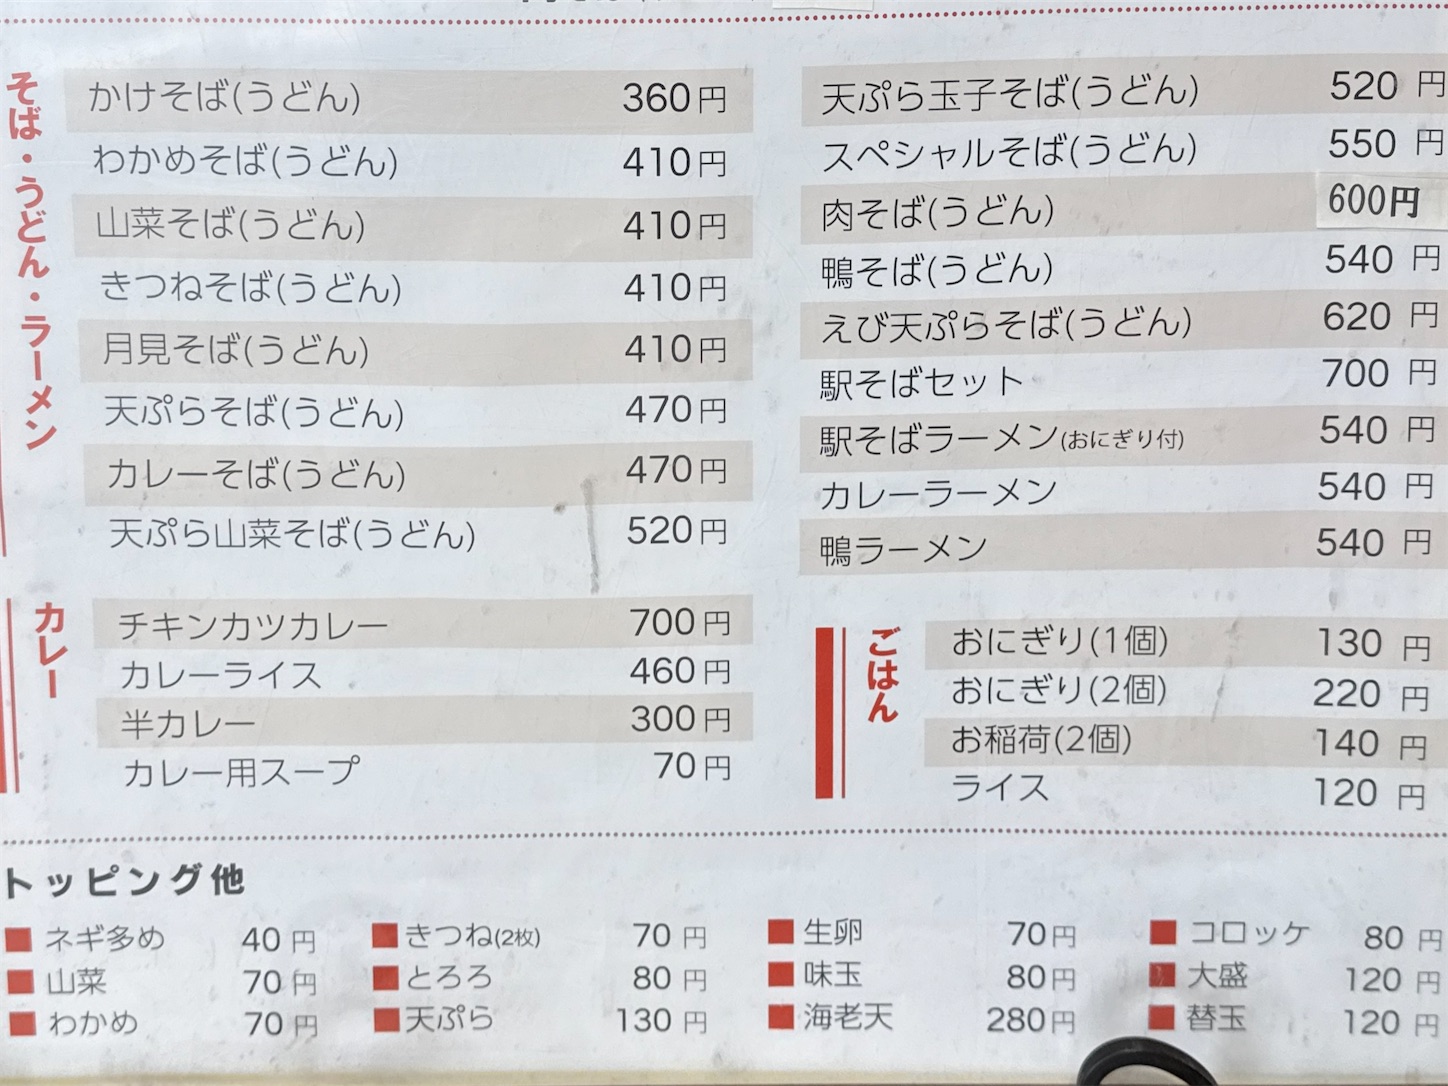 そば・うどん・ラーメン
かけそば(うどん) 360円
わかめそば(うどん) 410円
山菜そば(うどん) 410円
きつねそば(うどん) 410円
月見そば(うどん) 410円
天ぷらそば(うどん) 470円
カレーそば(うどん) 470円
天ぷら山菜そば(うどん) 520円
天ぷら玉子そば(うどん) 520円
スペシャルそば(うどん) 550円
肉そば(うどん) 600円
鴨そば(うどん) 540円
えび天ぷらそば(うどん) 620円
駅そばセット 700円
駅そばラーメン(おにぎり付) 540円
カレーラーメン 540円
鴨ラーメン 540円
カレー
チキンカツカレー 700円
カレーライス 460円
半カレー 300円
カレー用スープ 70円
ごはん
おにぎり(1個) 130円
おにぎり(2個) 220円
お稲荷(2個) 140円
ライス 120円
トッピング他
ネギ多め 40円 きつね(2枚) 70円 生卵 70円 コロッケ 80円
山菜 70円 とろろ 80円 味玉 80円 大盛 120円
わかめ 70円 天ぷら 130円 海老天 280円 替玉 120円